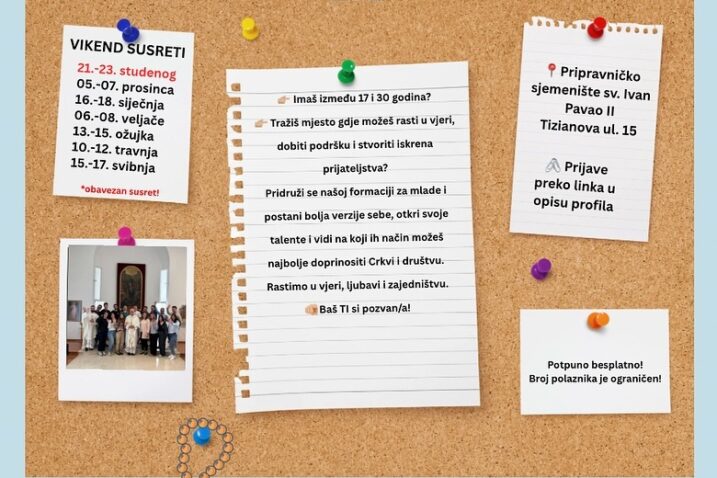 VIKEND SUSRETI
21.-23. studenog
05.-07. prosinca
16.-18. siječnja
06.-08. veljače
13.-15. ožujka
10.-12. travnja
15.-17. svibnja
*obavezan susret!
👉🏼 Imaš između 17 i 30 godina?
👉🏼 Tražiš mjesto gdje možeš rasti u vjeri,
dobiti podršku i stvoriti iskrena
prijateljstva?
Pridruži se našoj formaciji za mlade i
postani bolja verzije sebe, otkri svoje
talente i vidi na koji ih način možeš
najbolje doprinositi Crkvi i društvu.
Rastimo u vjeri, ljubavi i zajedništvu.
🫵🏼Baš TI si pozvan/a!
📍Pripravničko
sjemenište sv. Ivan
Pavao II
Tizianova ul. 15
🖇️ Prijave
preko linka u
opisu profila
Potpuno besplatno!
Broj polaznika je ograničen!